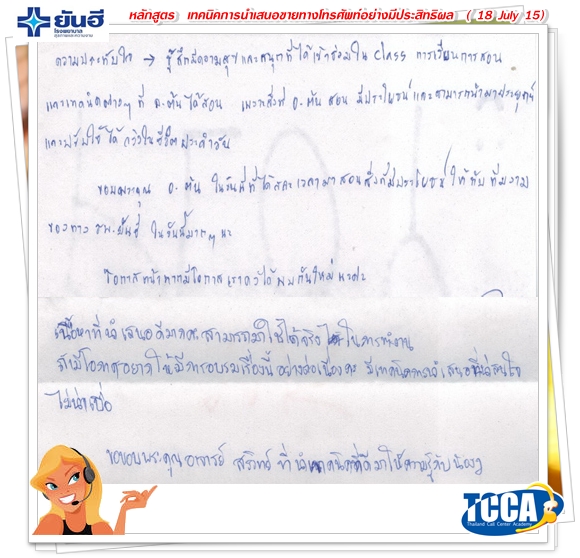 ยันฮี
โรงพยาบาล
หลักสูตร เทคนิคการนำเสนอขายทางโทรศัพท์อย่างมีประสิทธิผล ( 18 July 15)
ความประทับใจ → รู้สึกมีความสุข และสนุกที่ได้เข้าร่วมใน Class การเรียนการสอน
และเทคนิคต่างๆ ที่ อ.ต้น ได้สอน เพราะสิ่งที่ อ.ต้น สอน มีประโยชน์ และสามารถนำมาประยุกต์
และปรับใช้ได้ จริงในชีวิตประจำวัน
ขอบพระคุณ อ.ต้น ในวันนี้ที่ได้สละเวลามาสอนสิ่งที่มีประโยชน์ ให้กับทีมงาน
ของทาง รพ.ยันฮี ในวันนี้มากๆ นะ
โอกาสหน้าหากมีโอกาส เราคงได้พบกันใหม่นะคะ
เนื้อหาที่นำเสนอดีมากค่ะ สามารถมาใช้ได้จริง ในการทำงาน
ถ้ามีโอกาสอยากให้มีการอบรมเรื่องนี้ อย่างต่อเนื่องค่ะ มีเทคนิคการนำเสนอที่น่าสนใจ
ไม่น่าเบื่อ
ขอขอบพระคุณ อาจารย์ ที่นำเทคนิคที่ดีมาให้ความรู้กับน้องๆ
TCCA
Thailand Call Center Academy